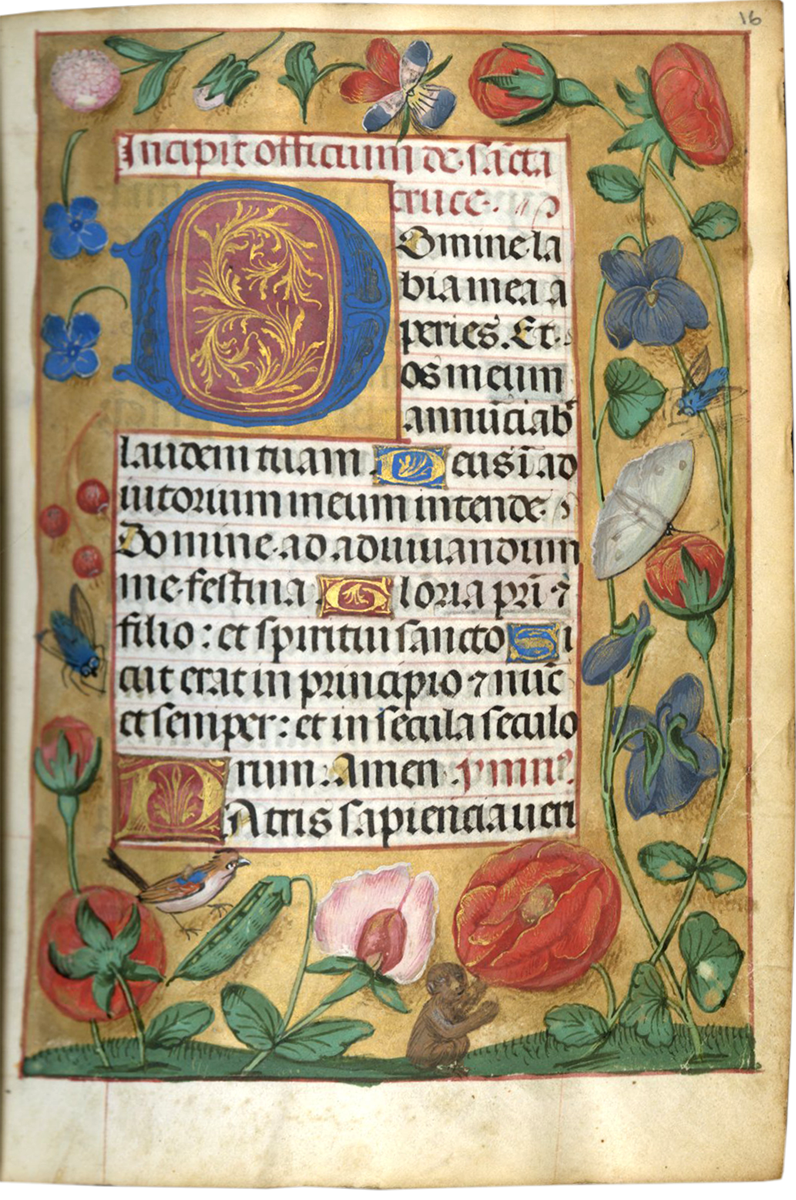 16
Incipit officium de sācta
cruce.
Domine la
bia mea a
peries. Et
os meum
annūciab
laudem tuam Deus ī ad
iutorium meum intende
Domine ad adiuuandum
me festina Gloria pri ⁊
filio : et spiritui sancto Si
cut erat in principio ⁊ nūc
et semper : et in secula seculo
rum Amen ymnꝰ.
PAtris sapiencia ueri